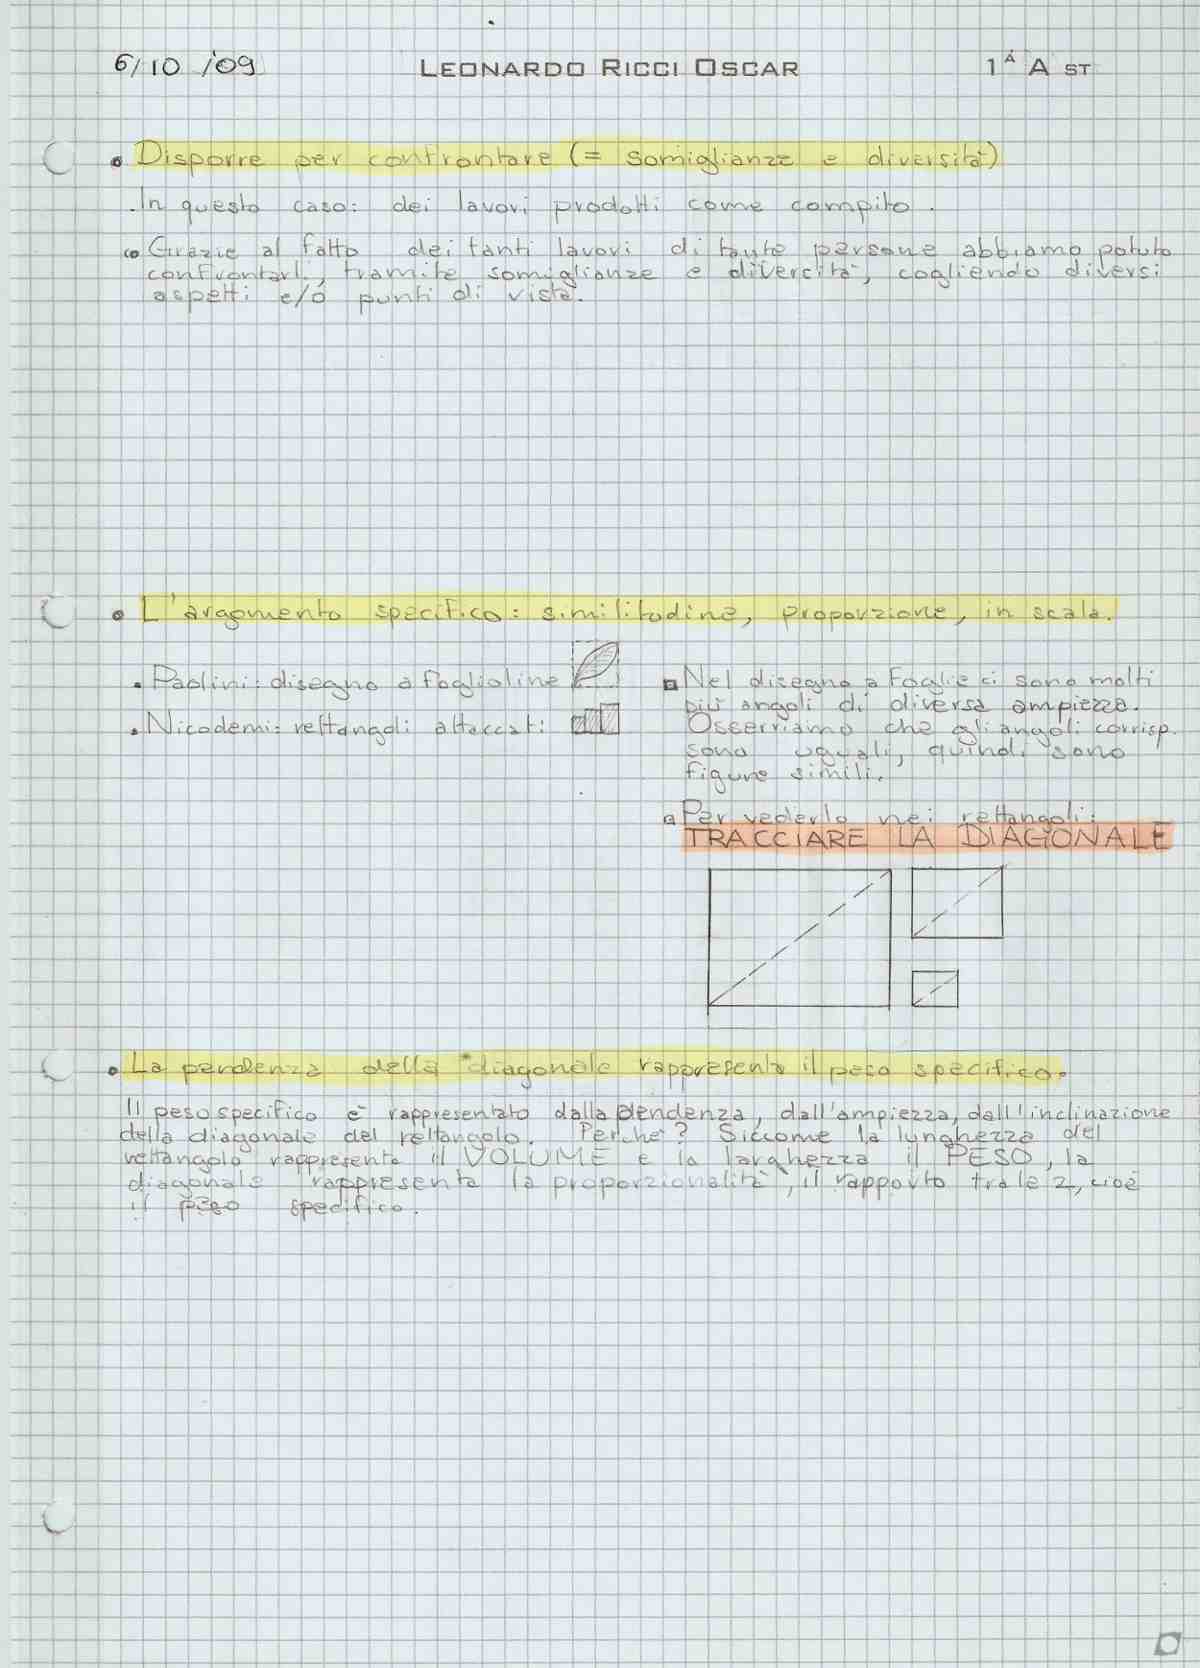 6/10/'09 LEONARDO RICCI OSCAR 1ª A ST
• Disporre per confrontare (= somiglianze e diversità)
. In questo caso: dei lavori prodotti come compito.
Grazie al fatto dei tanti lavori di tante persone abbiamo potuto
confrontarli, tramite somiglianze e divercità, cogliendo diversi
aspetti e/o punti di vista.
• L'argomento specifico: similitudine, proporzione, in scala.
. Paolini: disegno a foglioline
. Nicodemi: rettangoli attaccati
Nel disegno a foglie ci sono molti
più angoli di diversa ampiezza.
Osserviamo che gli angoli corrisp.
sono uguali, quindi sono
figure simili.
Per vederlo nei rettangoli:
TRACCIARE LA DIAGONALE
• La pendenza della diagonale rappresenta il peso specifico.
Il peso specifico è rappresentato dalla pendenza, dall'ampiezza, dall'inclinazione
della diagonale del rettangolo. Perché? Siccome la lunghezza del
rettangolo rappresenta il VOLUME e la larghezza il PESO, la
diagonale rappresenta la proporzionalità, il rapporto tra le 2, cioè
il peso specifico.